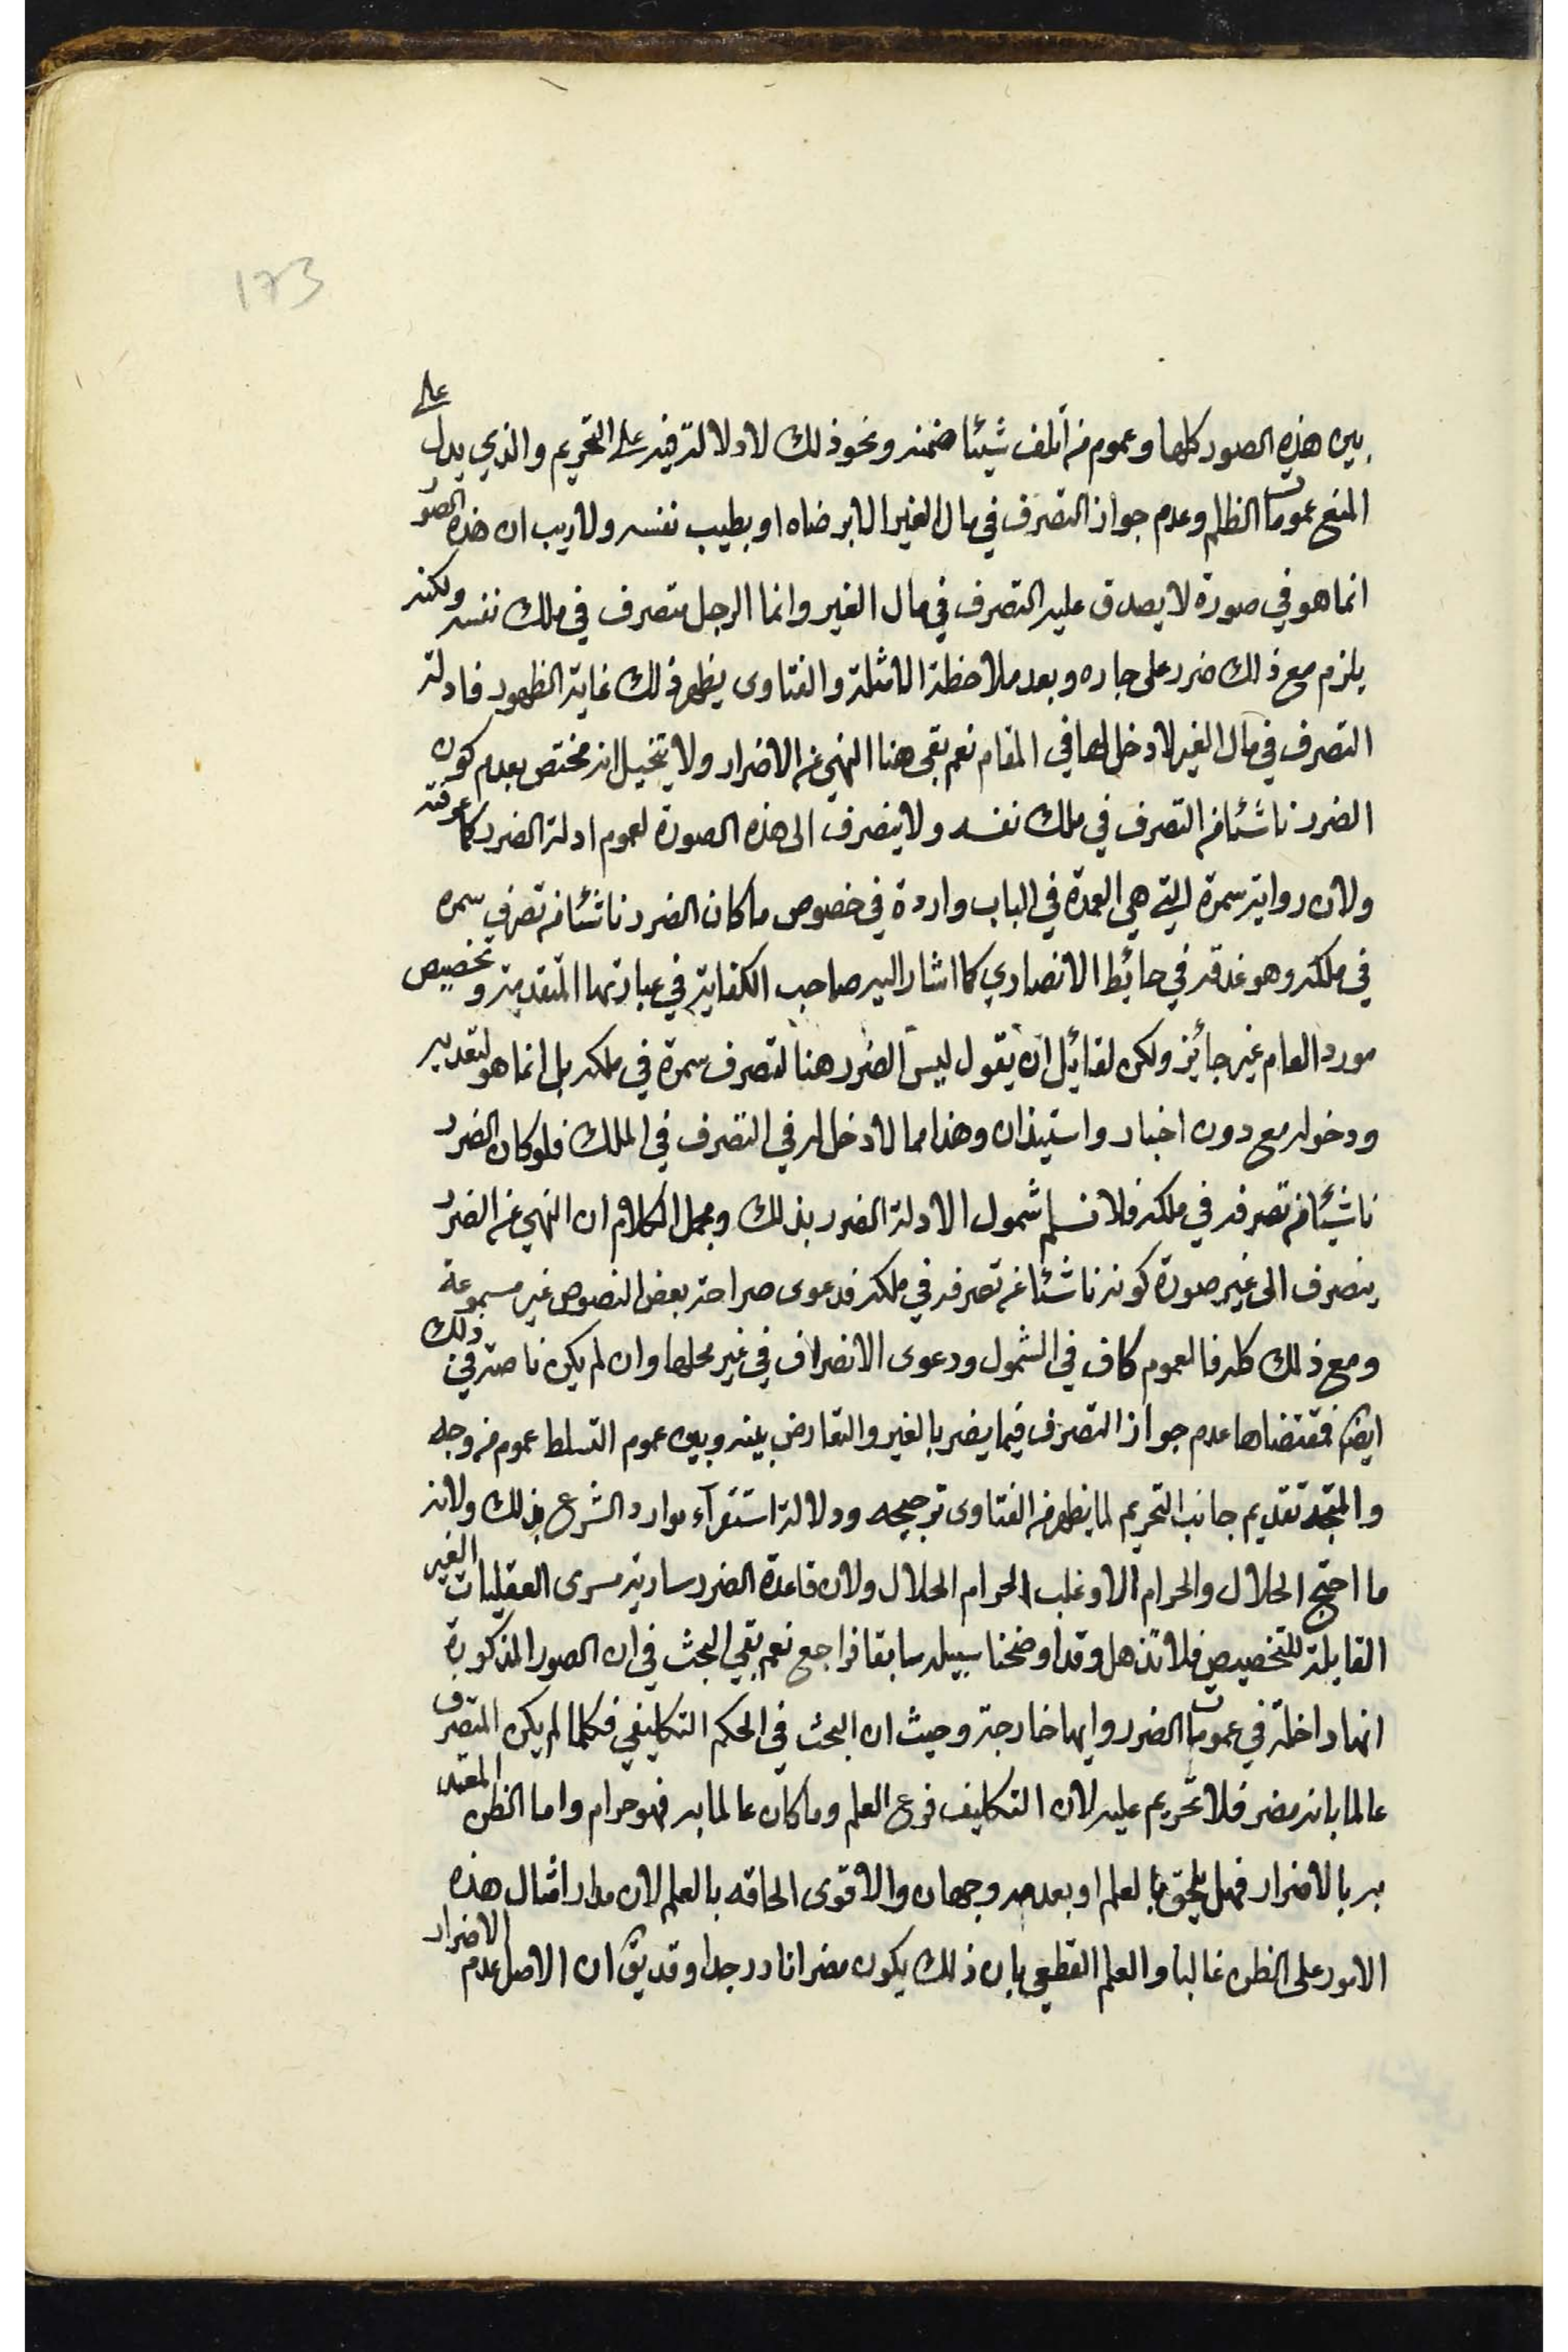 173
بين هذه الصور كلها وعموم من أتلف شيئا ضمنه ونحو ذلك لا دلالة فيه على التحريم والذي يدل على
المنع عمومات الظلم وعدم جواز التصرف في مال الغير الا برضاه او بطيب نفسه ولا ريب ان هذه الصور
انما هو في صورة لا يصدق عليه التصرف في مال الغير وانما الرجل متصرف في ملك نفسه ولكنه
يلزم مع ذلك ضرر على جاره وبعد ملاحظة الامثلة والفتاوى يظهر ذلك غاية الظهور فادلة
التصرف في مال الغير لا دخل لها في المقام نعم بقى هنا النهي عن الاضرار ولا يتخيل انه مختص بعدم كون
الضرر ناشئا من التصرف في ملك نفسه ولا ينصرف الى هذه الصورة لعموم ادلة الضرر كما عرفته
ولان رواية سمرة التي هي العمدة في الباب واردة في خصوص ما كان الضرر ناشئا من تصرف سمره
في ملكه وهو عذقه في حائط الانصاري كما اشار اليه صاحب الكفاية في عبارتها المتقدمة وتخصيص
مورد العام غير جائز ولكن لقائل ان يقول ليس الضرر هنا لتصرف سمرة في ملكه بل انما هو لتعديه
ودخوله مع دون اخبار واستيذان وهذا مما لا دخل له في التصرف في الملك فلو كان الضرر
ناشئا من تصرفه في ملكه فلا نسلم شمول الادلة الضرر بذلك ومجمل الكلام ان النهي عن الضرر
ينصرف الى غير صورة كونه ناشئا عن تصرفه في ملكه فدعوى صراحة بعض النصوص غير مسموعة
ومع ذلك كله فالعموم كاف في الشمول ودعوى الانصراف في غير محلها وان لم يكن ناصة في ذلك
ايضا فمقتضاها عدم جواز التصرف فيما يضر بالغير والتعارض بينه وبين عموم التسلط عموم من وجه
والمتجه تقديم جانب التحريم لما يظهر من الفتاوى ترجيحه ودلالة استقرآء موارد الشرع بذلك ولانه
ما اجتمع الحلال والحرام الا وغلب الحرام الحلال ولان قاعدة الضرر سارية مسرى العقليات الغير
القابلة للتخصيص فلا تذهل وقد اوضحنا سبيله سابقا فراجع نعم بقي البحث في ان الصور المذكورة
انها داخلة في عمومات الضرر وايها خارجة وحيث ان البحث في الحكم التكليفي فكلما لم يكن المتصرف
عالما بانه مضر فلا تحريم عليه لان التكليف فرع العلم وما كان عالما به فهو حرام واما الظن المعتد
به بالاضرار فهل يلحق بالعلم او بعدمه وجهان والاقوى الحاقه بالعلم لان مدار امثال هذه
الامور على الظن غالبا والعلم القطعي بان ذلك يكون مضرا نادر جدا وقد يق ان الاصل عدم الاضرار